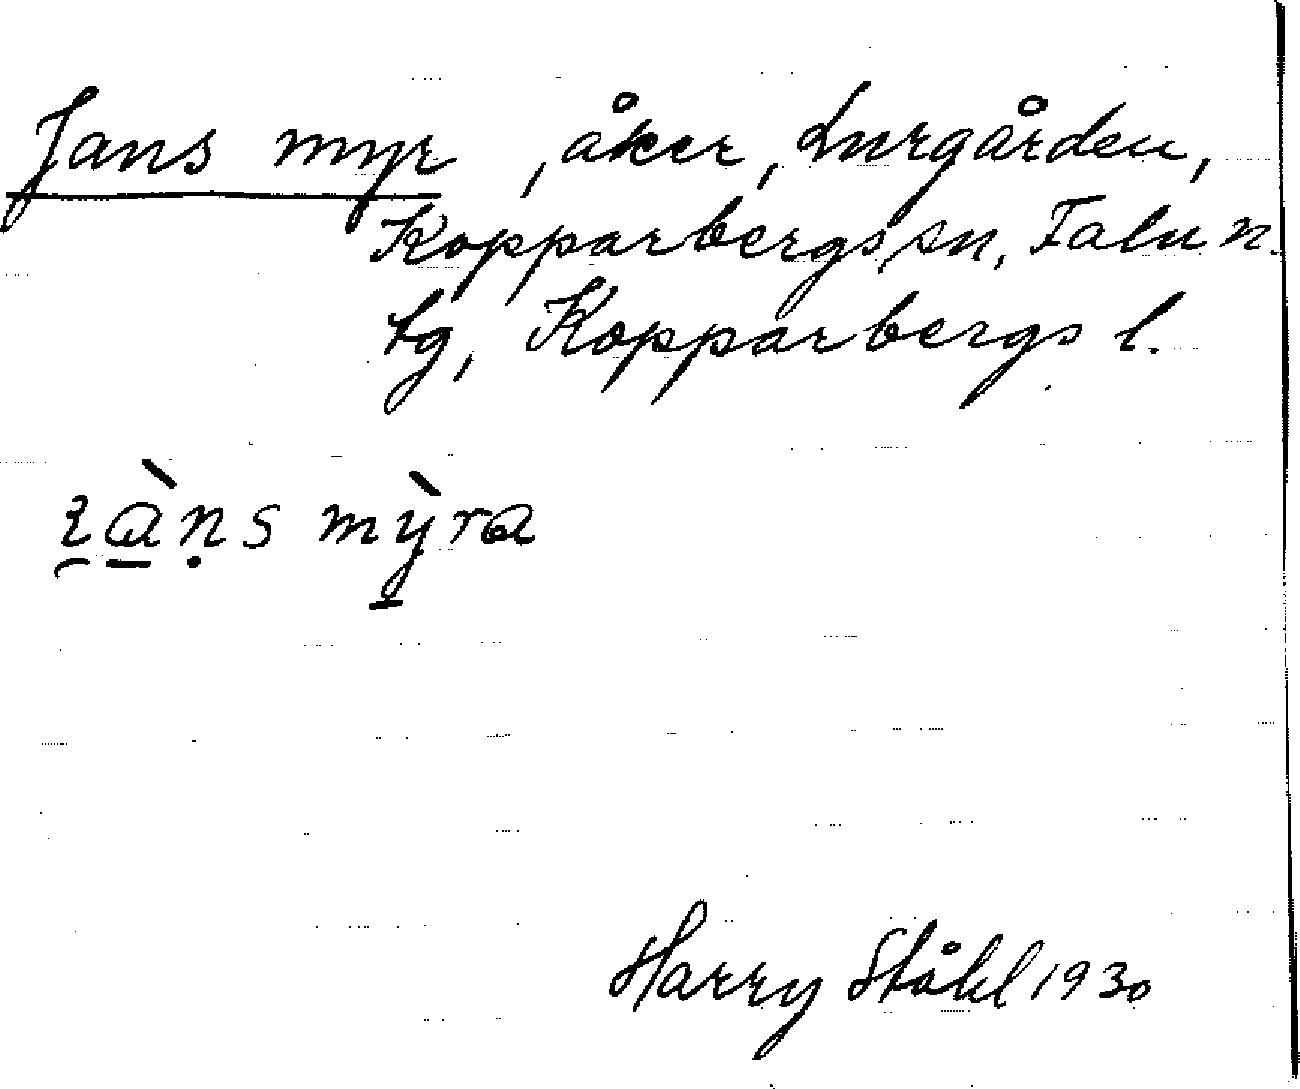 Jans myr, åker, Lurgården,
Kopparbergs sn, Falu n.
tg, Kopparbergs l.
mỳra
Harry Ståhl 1930